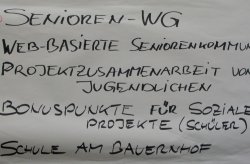 SENIOREN-WG
WEB-BASIERTE SENIORENKOMMU
PROJEKTZUSAMMENARBEIT VON
JUGENDLICHEN
BONUSPUNKTE FÜR SOZIALE
PROJEKTE (SCHÜLER)
SCHULE AM BAUERNHOF